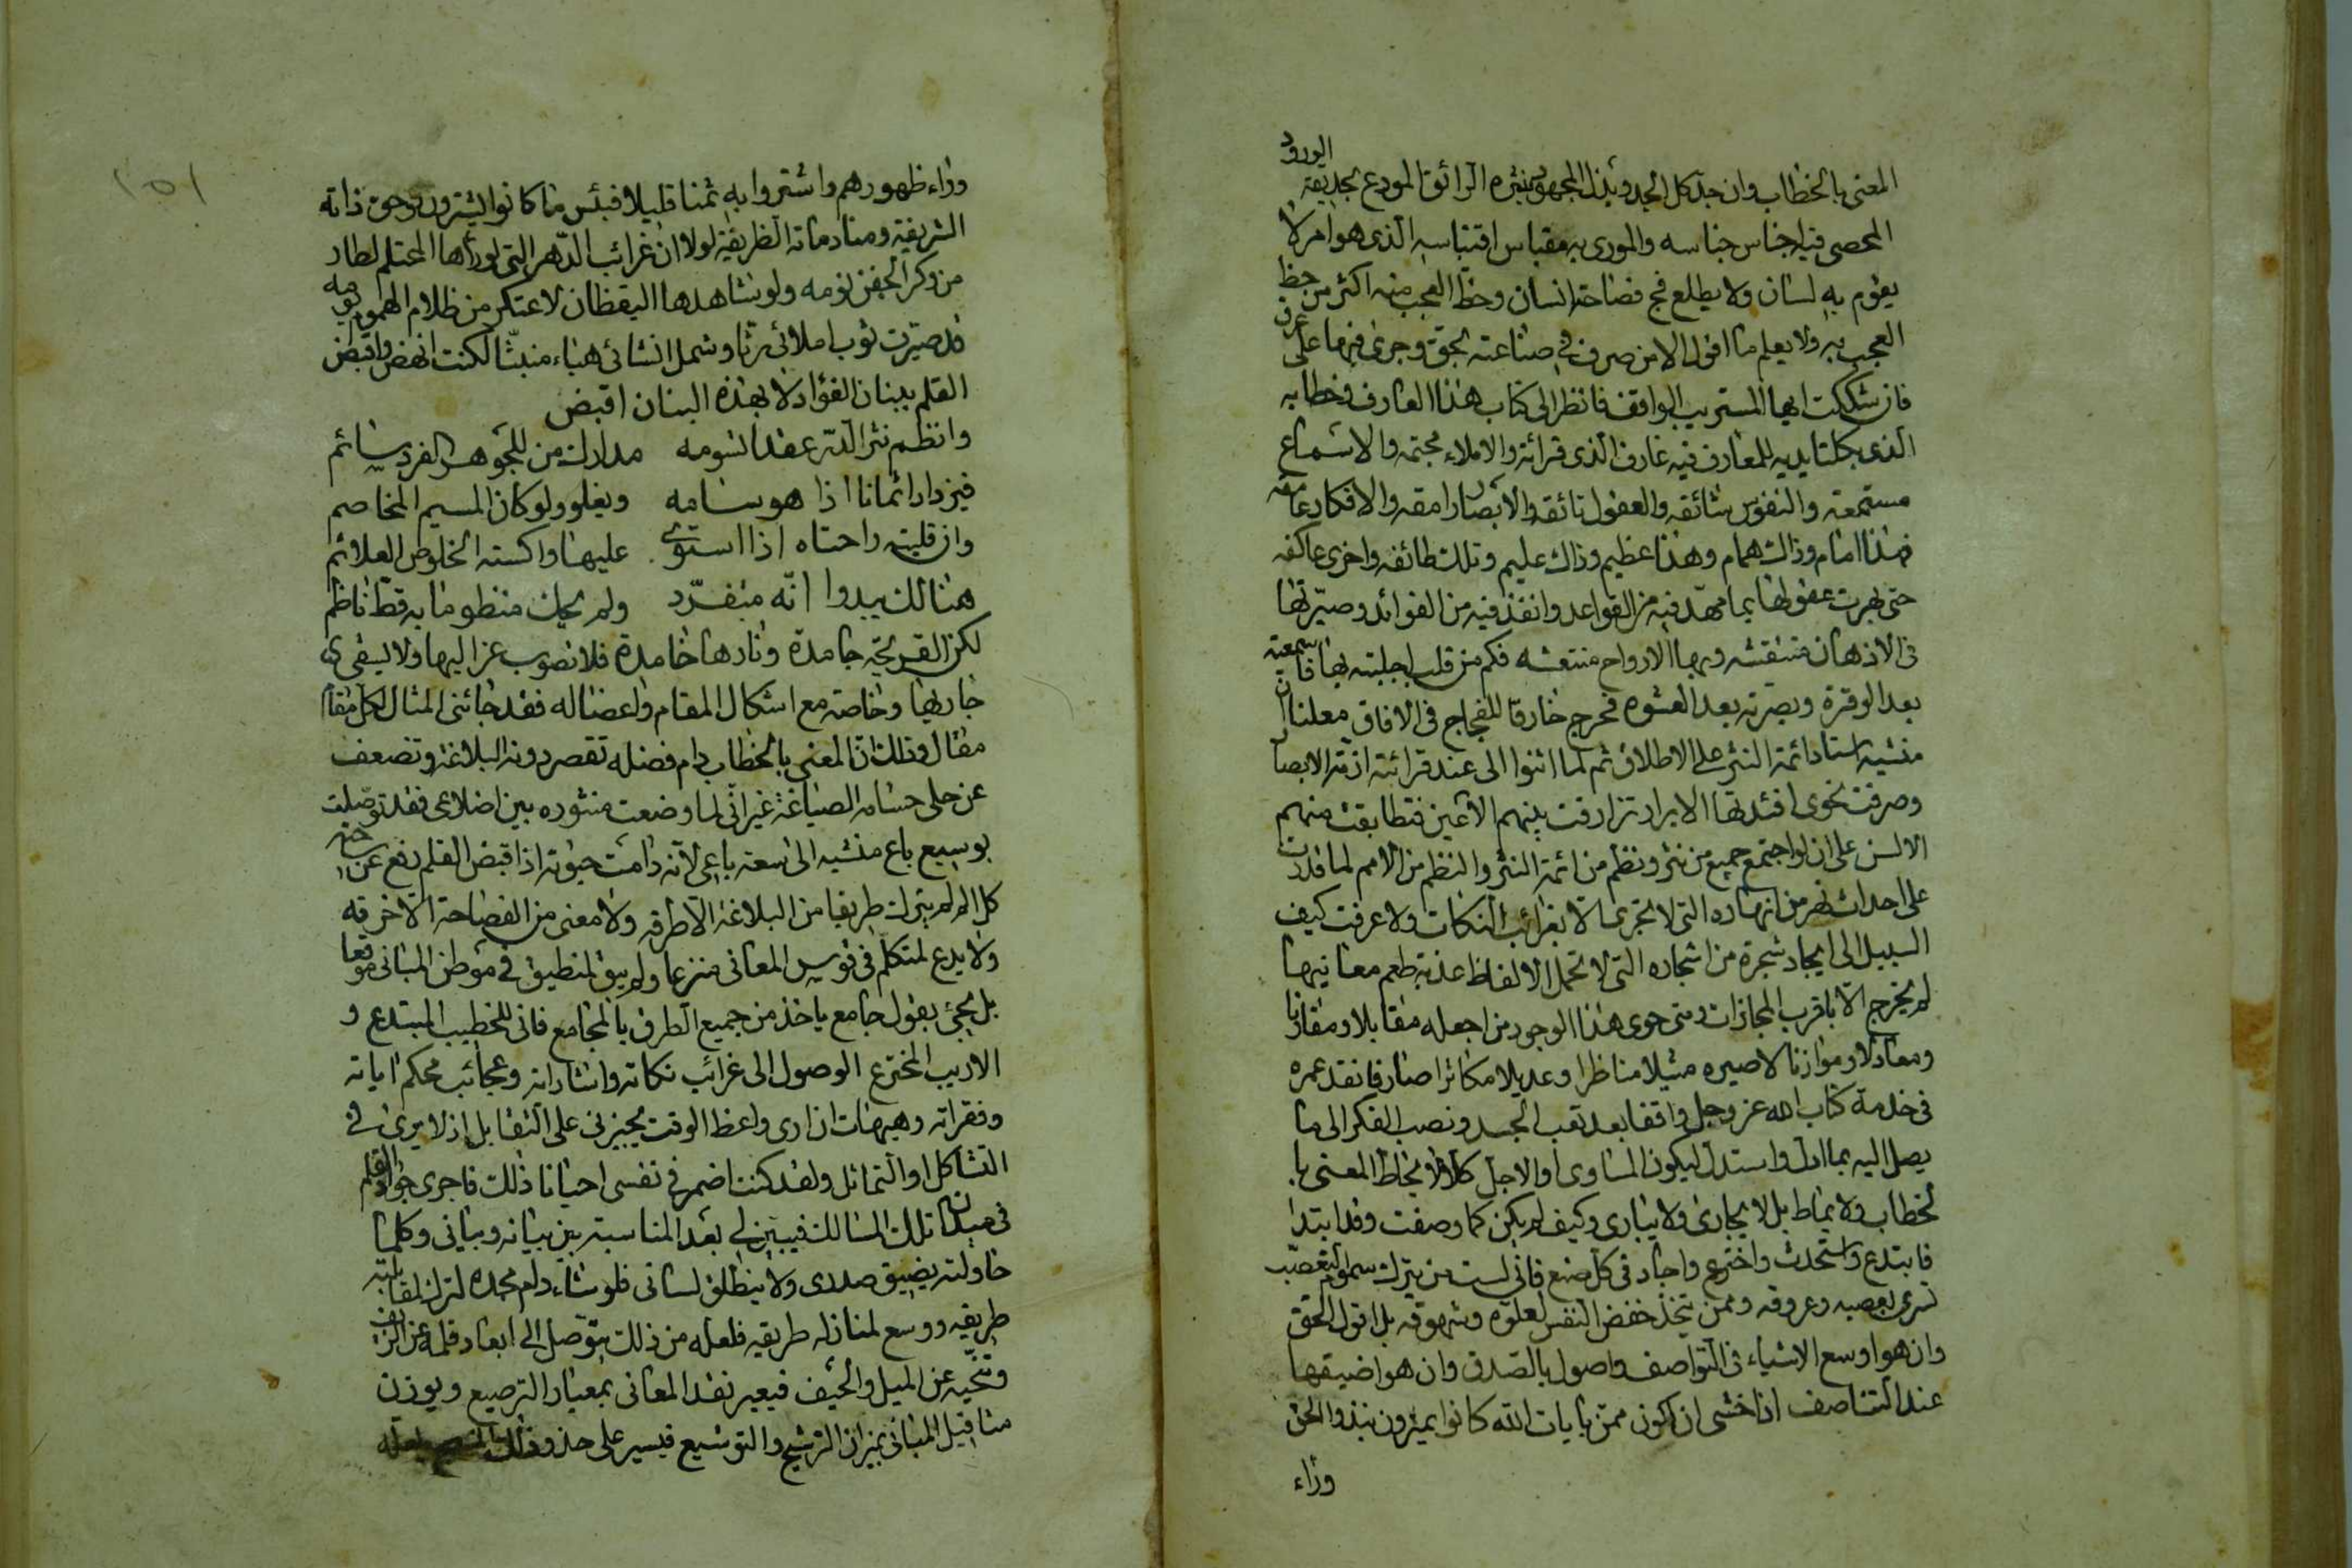 المعنى بالخطاب وان جد كل الجد وبذل المجهود بنثره الرائق المودع بحديقة الورود
المحصى فيه اجناس جناسه والمورى به مقباس اقتباسه الذى هو امر لا
يقوم به لسان ولا يطلع فج فصاحة انسان وحظ العجب منه اكثر من حظ
العجب به ولا يعلم ما اقول الا من صرف فى صناعته بحق وجرى فيها على عرق
فان شككت ايها المستريب الواقف فانظر الى كتاب هذا العارف وخطابه
الذى بكلتا يديه للمعارف فيه غارف الذى قرائة والاملاء مجتمعة والاسماع
مستمعة والنفوس شائقه والعقول تائقه والابصار رامقه والافكار
فهذا امام وذاك همام وهذا عظيم وذاك عليم وتلك طائفه واخرى عاكفه
حتى بهرت عقولها بما مهد فيه من القواعد وانفذ فيه من الفوائد وصيرتها
فى الاذهان منتقشه وبها الارواح منتعشه فكم من قلب اجلبته بها فاسمعته
بعد الوقرة وبصرته بعد العشوه فخرج خارقا للفجاج فى الافاق معلنا ان
منشيه استاد ائمة النثر على الاطلاق ثم لما اثنوا الى عند قرائته ازمة الابصار
وصرفت نحوى افئدتها الابرار ترادفت بينهم الاعين فتطابقت منهم
الالسن على ان لو اجتمع جميع من نثر ونظم من ائمة النثر والنظم من الامم لما قدرت
على احداث نهر من انهاره التى لا تجرى الا بغرائب النكات ولا عرفت كيف
السبيل الى ايجاد شجرة من اشجاره التى لا تحمل الا لفاظ عذبة طعم معانيها
لم يخرج الا باقرب المجازات ومتى حوى هذا الوجود من اجعله مقابلا ومقارنا
ومعادلا وموازنا لاصيره مثيلا مناظرا وعديلا مكاثرا صار فانقد عمره
فى خدمة كتاب الله عز وجل واقفا بعد تعب الجسد ونصب الفكر الى ما
يصل اليه بما ادل واستدل ليكون المساوى او الاجل كلا لا يخاطر المعنى با
لخطاب ولا يماط بل لا يجارى ولا يبارى وكيف لم يكن كما وصفت وقد ابتدا
فابتدع واستحدث واخترع واجاد فى كل صنع فانى لست من يترك سموم التعصب
تسرى بعصبه وعروقه وممن يتخذ خفض النفس لعلوه وشهوقه بل اقول الحق
وان هو اوسع الاشياء فى التواصف واصول بالصدق وان هو اضيقها
عند التناصف اذ اخشى ان اكون ممن بايات الله كانوا يمترون نبذوا الحق
وراء
١٥١
وراء ظهورهم واشتروا به ثمنا قليلا فبئس ما كانوا يشترون وحق ذاته
الشريفة ومنادماته الظريفة لولا ان غرائب الدهر التى لو رأها المحتلم لطار
من وكر الجفن نومه ولو شاهدها اليقظان لاعتكر من ظلام الهموم يومه
قد صيرت ثوب املائى رثا وشمل انشائى هباء منبثا لكنت انهض واقبض
القلم ببنان الفؤاد لا بهذه البنان اقبض
وانظم نثر الدر عقدا تسومه مدارك من للجوهر الفرد سائم
فيزداد اثمانا اذا هو سامه ويغلو ولو كان المسيم المخاصم
وان قلبته راحتاه اذا استوى عليها واكسته الخلوص العلائم
هنالك يبدوا انه متفرد ولم يحك منظوما به قط ناظم
لكن القريحة جامدة ونارها خامدة فلا نصوب عزاليها ولا يسقى
جاريها وخاصة مع اشكال المقام واعضاله فقد جائنى المثال لكل مقام
مقال وذلك ان المعنى بالخطاب دام فضله تقصر دونه البلاغة وتضعف
عن حلى حسامه الصياغة غير انى لما وضعت منثوره بين اضلاعى فقد توصلت
بوسيع باع منشيه الى سعة باعى لانه دامت حيوته اذا قبض القلم رفع عن
كل الم لم يترك طريقا من البلاغة الا طرقه ولا معنى من الفصاحة الا خرقه
ولا يدع لمتكلم فى قوس المعانى منزعا ولم يبق لمنطيق فى موطن المبانى موقعا
بل يجئ بقول جامع ياخذ من جميع الطرق بالمجامع فانى للخطيب المبتدع و
الاديب المخترع الوصول الى غرائب نكاته واشاراته وعجائب محكم اياته
وفقراته وهيهات ان ارى واعظ الوقت يجيزنى على التقابل اذ لا يرى فى
التشاكل او التماثل ولقد كنت اضمر فى نفسى احيانا ذلك فاجرى جواد القلم
فى ميدان تلك المسالك فيبين لى بعد المناسبة بين بيانه وبيانى وكلما
حاولته يضيق صدرى ولا ينطلق لسانى فلو شاء دام مجده لترك لمقابلته
طريقه ووسع لمنازله طريقه فلعله من ذلك يتوصل الى ابعاد قلمه عن الزيف
وتنحيه عن الميل والحيف فيعير نقد المعانى بمعيار الترصيع ويوزن
مثاقيل المبانى بميزان الترشيح والتوشيع فيسير على حذو